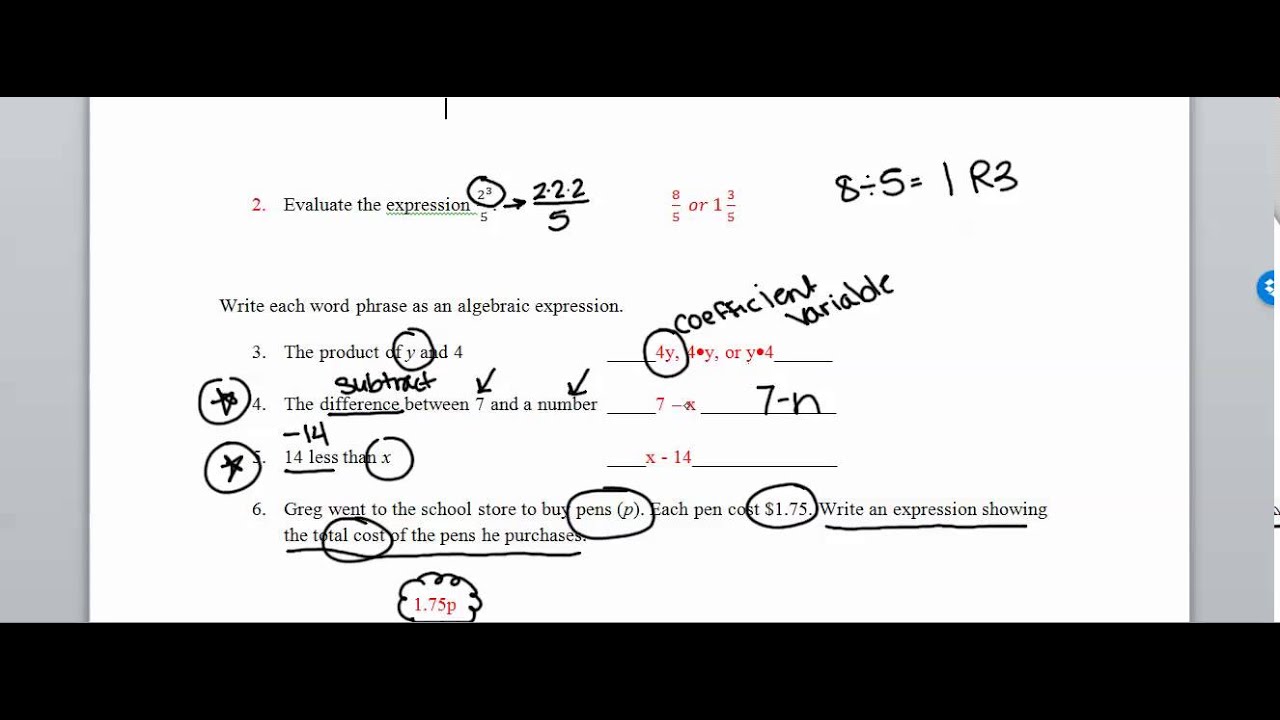 2. Evaluate the expression 2³/5 . → 2·2·2/5 8/5 or 1 3/5 8÷5= 1 R3
Write each word phrase as an algebraic expression.
coefficient variable
3. The product of y and 4 _____4y, 4•y, or y•4______
subtract
4. The difference between 7 and a number _____7 – x ______________ 7-n
-14
5. 14 less than x ____x - 14_______________
6. Greg went to the school store to buy pens (p). Each pen cost $1.75. Write an expression showing
the total cost of the pens he purchases.
1.75p